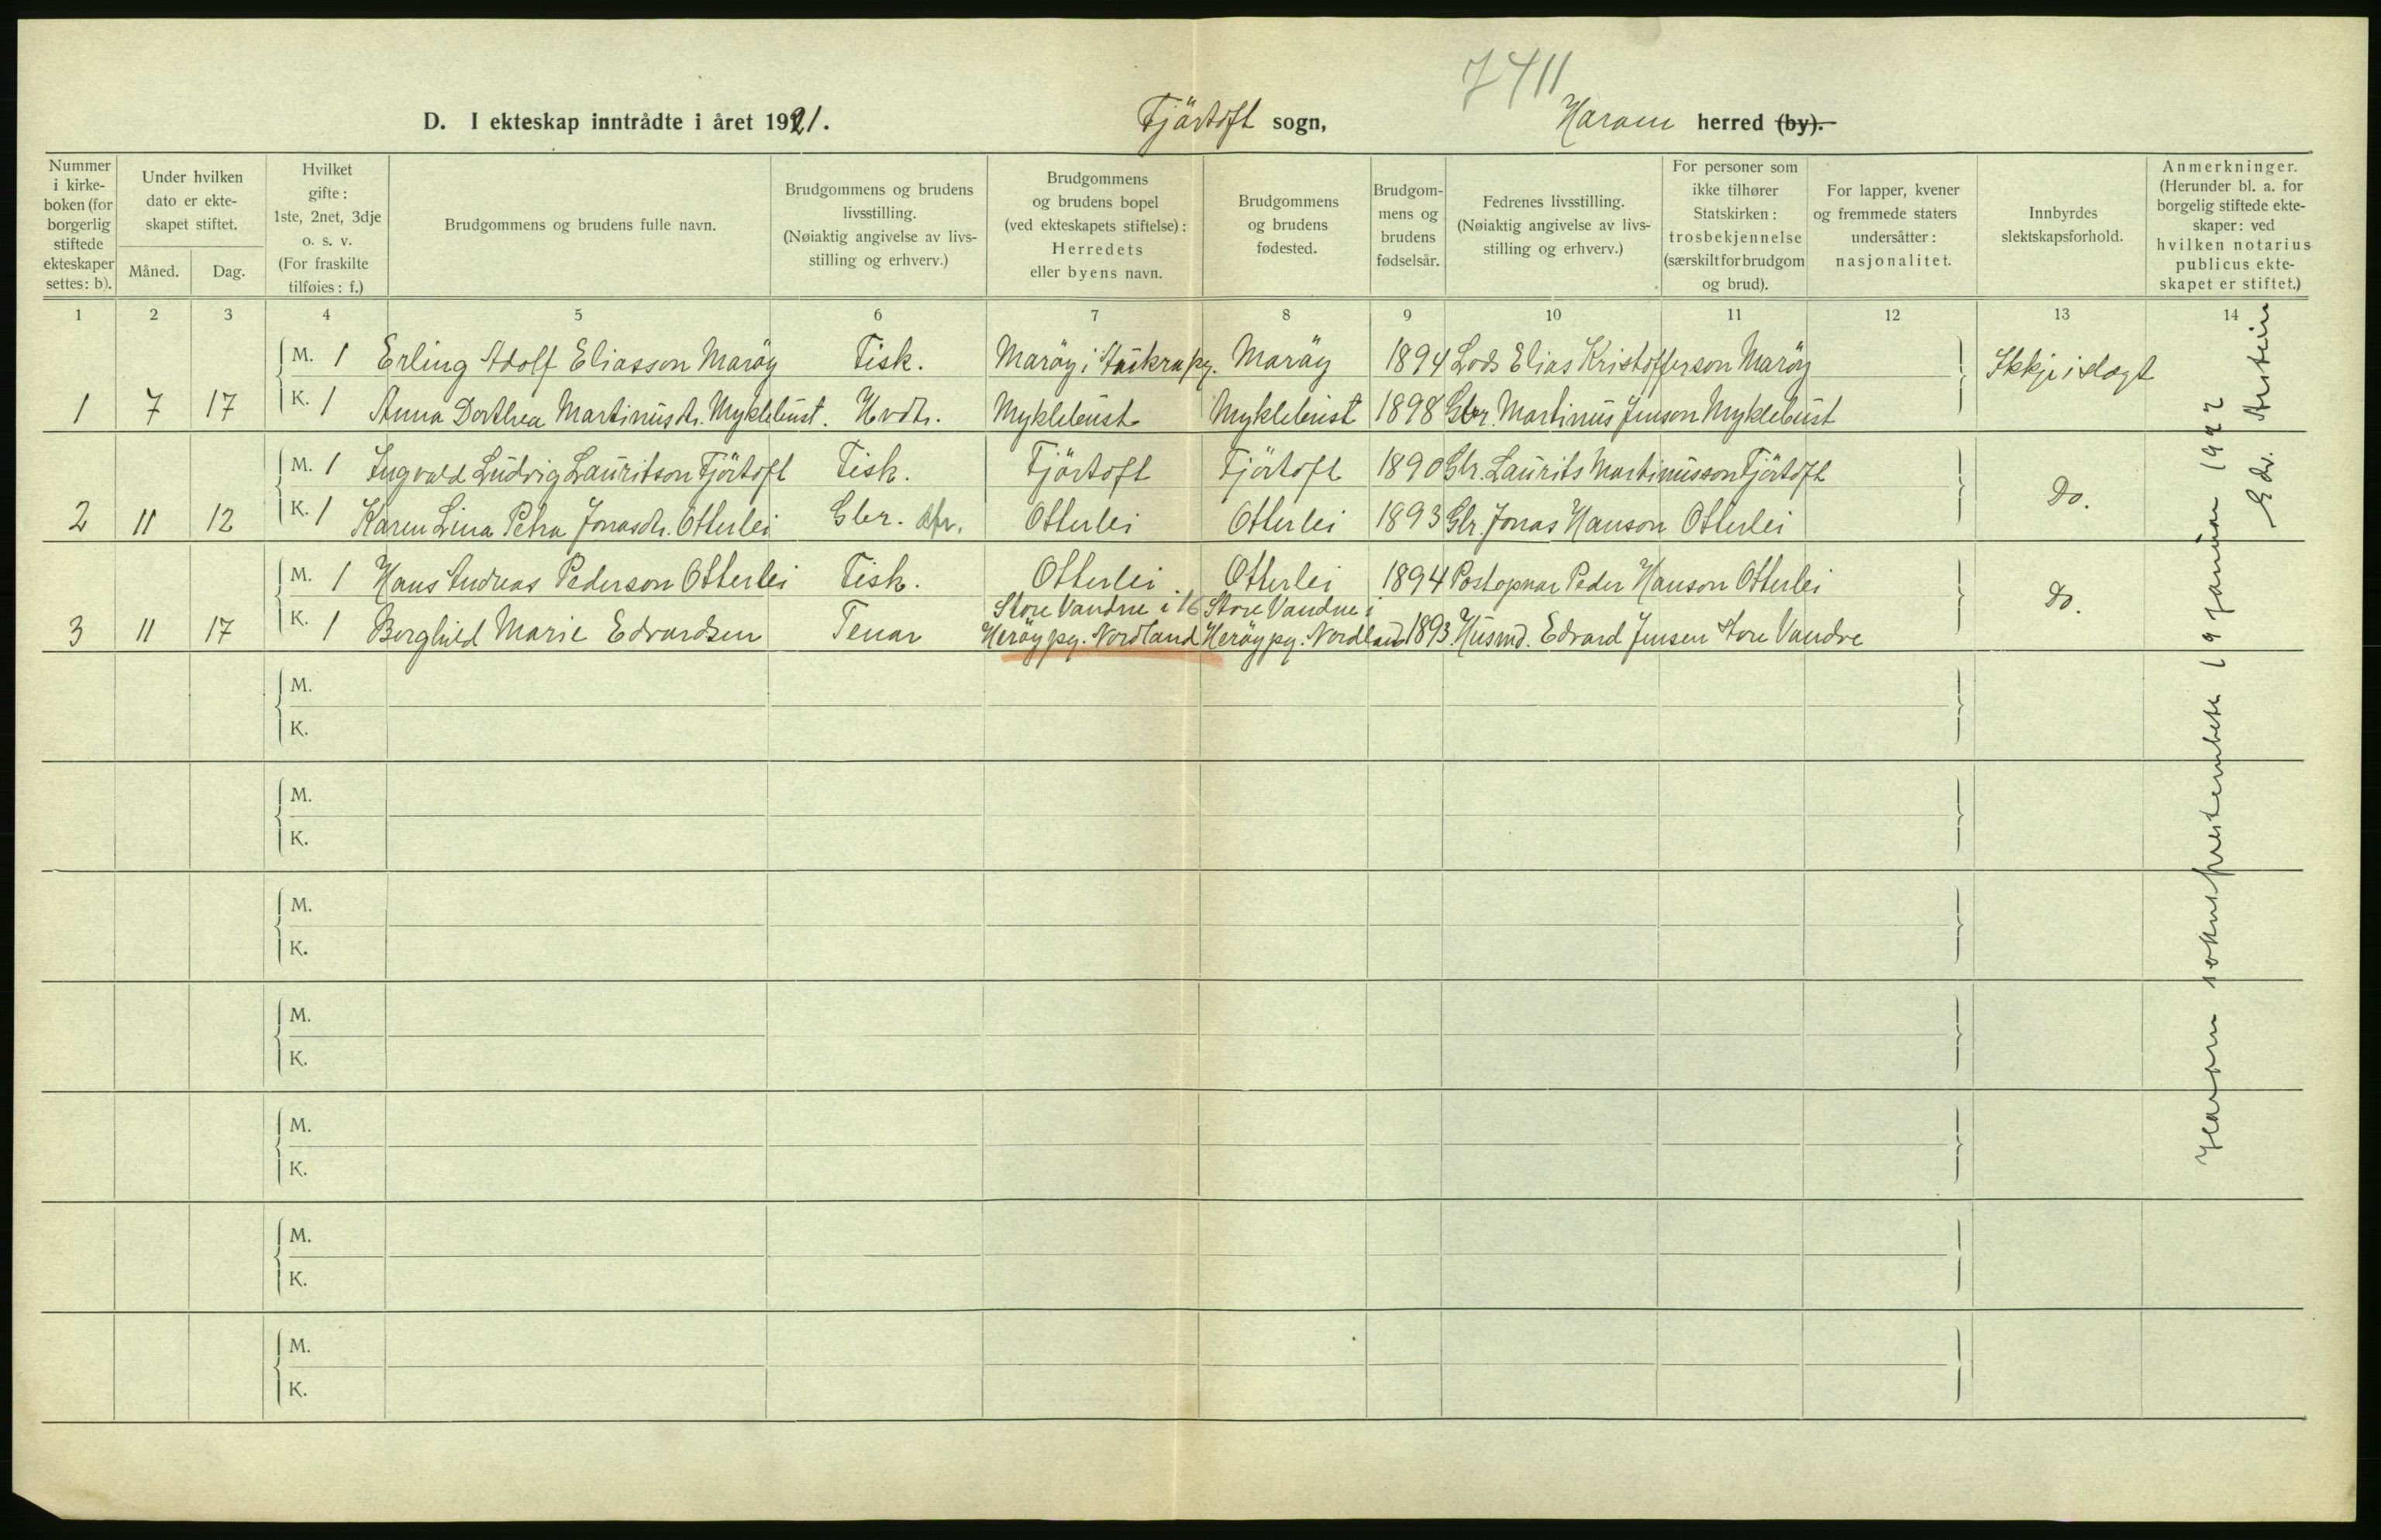 7411
D. I ekteskap inntrådte i året 1921. Fjärtoft sogn, Haram herred (by).
Nummer i kirkeboken (for borgerlig stiftede ekteskaper settes: b).
Under hvilken dato er ekteskapet stiftet.
Måned. Dag.
Hvilket gifte: 1ste, 2net, 3dje o. s. v. (For fraskilte tilføies: f.)
Brudgommens og brudens fulle navn.
Brudgommens og brudens livsstilling. (Nøiaktig angivelse av livsstilling og erhverv.)
Brudgommens og brudens bopel (ved ekteskapets stiftelse): Herredets eller byens navn.
Brudgommens og brudens fødested.
Brudgommens og brudens fødselsår.
Fedrenes livsstilling. (Nøiaktig angivelse av livsstilling og erhverv.)
For personer som ikke tilhører Statskirken: trosbekjennelse (særskilt for brudgom og brud).
For lapper, kvener og fremmede staters undersåtter: nasjonalitet.
Innbyrdes slektskapsforhold.
Anmerkninger. (Herunder bl. a. for borgelig stiftede ekteskaper: ved hvilken notarius publicus ekteskapet er stiftet.)
1 2 3 4 5 6 7 8 9 10 11 12 13 14
M. 1 Erling Adolf Eliasson Maröy Fisk. Maröy i Aukra pg. Maröy 1894 Lods Elias Kristofferson Maröy Ikkje i slægt
1 7 17 K. 1 Anna Dorthea Martinusdtr. Myklebust. Hvdtr. Myklebust Myklebust 1898 Gbr. Martinus Jenson Myklebust
M. 1 Ingvald Ludvig Lauritson Fjörtoft Fisk. Fjörtoft Fjörtoft 1890 Gbr. Laurits Martinusson Fjörtoft
2 11 12 K. 1 Karen Lina Petra Jonasdtr. Otterlei Gbr. dtr. Otterlei Otterlei 1893 Gbr. Jonas Hanson Otterlei Do.
M. 1 Hans Andreas Pederson Otterlei Fisk. Otterlei Otterlei 1894 Postopnar Peder Hanson Otterlei Do.
Store Vandve i 16 Store Vandve i
3 11 17 K. 1 Borghild Marie Edvardsen Tenar Heröy pg. Nordland Heröy pg. Nordland 1893 Husmd. Edvard Jensen Store Vandve
M.
K.
M.
K.
M.
K.
M.
K.
M.
K.
M.
K.
M.
K.
Haram soknepresteembete 19 januar 1922
Edv.